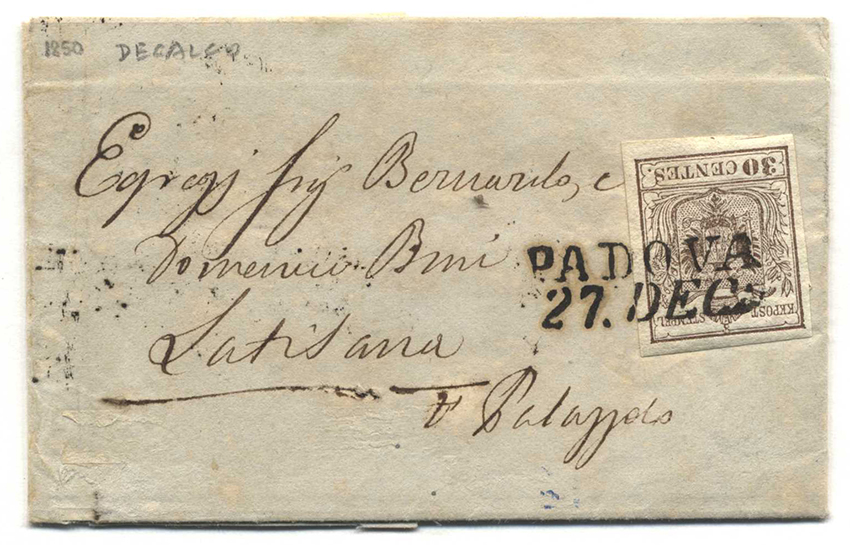 1850 DECALCO
Egregj Sigj Bernardo, e
Domenico Bini
Latisana
p Palazzolo
30 CENTES.
KKPOST STEMPEL
PADOVA
27. DECE